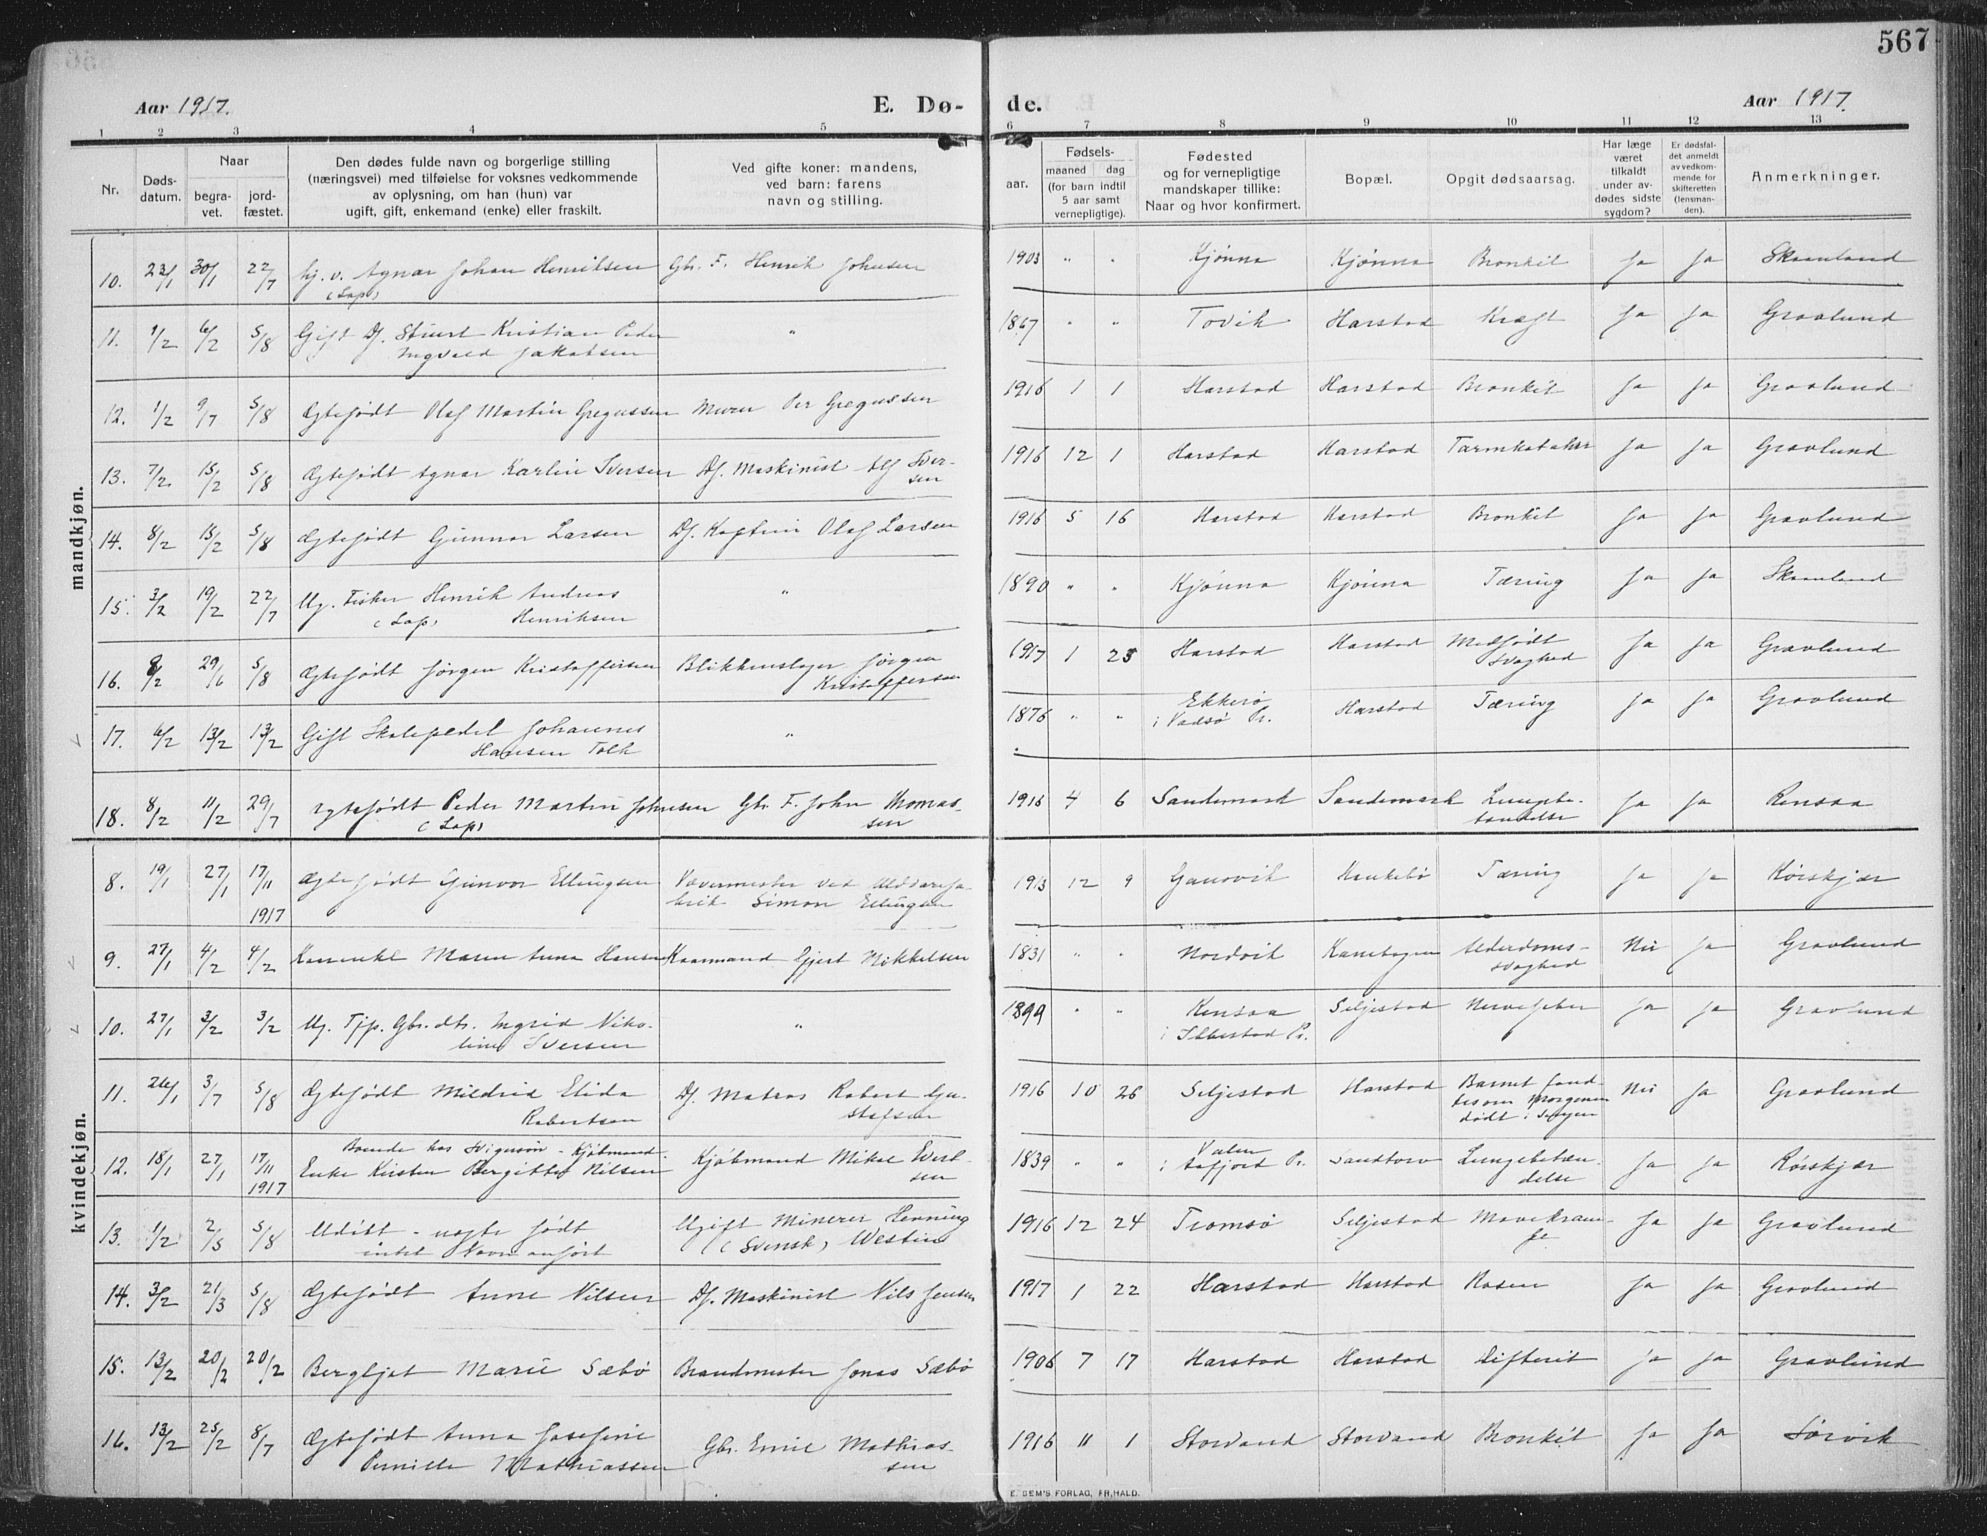 567
Aar 1917. E. Dø- de. Aar 1917.
1 2 3 4 5 6 7 8 9 10 11 12 13
Nr.
Døds-
datum.
Naar
begra-
vet.
jord-
fæstet.
Den dødes fulde navn og borgerlige stilling
(næringsvei) med tilføielse for voksnes vedkommende
av oplysning, om han (hun) var
ugift, gift, enkemand (enke) eller fraskilt.
Ved gifte koner: mandens,
ved barn: farens
navn og stilling.
aar.
Fødsels-
maaned dag
(for barn indtil
5 aar samt
vernepligtige).
Fødested
og for vernepligtige
mandskaper tillike:
Naar og hvor konfirmert.
Bopæl.
Opgit dødsaarsag.
Har læge
været
tilkaldt
under av-
dødes sidste
sygdom?
Er dødsfal-
det anmeldt
av vedkom-
mende for
skifteretten
(lensman-
den).
Anmerkninger.
mandkjøn.
10. 23/1 30/1 22/7 Agnar Johan Henriksen Gbr. F. Henrik Johnsen 1903 " " Kjønna Kjønna Bronkit Ja Ja Skaanland
(Lap)
11. 1/2 6/2 5/8 Gift Df. Stuert Kristian Peder " 1867 " " Tovik Harstad Kræft Ja Ja Gravlund
Ingvald Jakobsen
12. 1/2 9/7 5/8 Ægtefødt Olaf Martin Gregussen Murer Per Gregussen 1916 1 1 Harstad Harstad Bronkit Ja Ja Gravlund
13. 7/2 15/2 5/8 Ægtefødt Agnar Karlin Iversen Df. Maskinist Alf Iver- 1916 12 1 Harstad Harstad Tarmkatahr Ja Ja Gravlund
sen
14. 8/2 15/2 5/8 Ægtefødt Gunnar Larsen Df. Kaptein Olaf Larsen 1916 5 16 Harstad Harstad Bronkit Ja Ja Gravlund
15. 3/2 19/2 22/7 Ug. Fisker Henrik Andreas " 1890 " " Kjønna Kjønna Tæring Ja Ja Skaanland
(Lap) Henriksen
16. 8/2 29/6 5/8 Ægtefødt Jørgen Kristoffersen Blikkenslager Jørgen 1917 1 25 Harstad Harstad Medfødt Ja Ja Gravlund
Kristoffersen svaghed
17. 6/2 13/2 13/2 Gift Skolepedel Johannes " 1876 " " Ekkerø Harstad Tæring Ja Ja Gravlund
Hansen Tolk i Vadsø Pr.
18. 8/2 11/2 29/7 Ægtefødt Peder Martin Johnsen Gbr. F. John Thomas- 1916 4 6 Sandemark Sandemark Lungebe- Ja Ja Rensaa
(Lap) sen tændelse
kvindekjøn.
8. 19/1 27/1 17/11 Ægtefødt Gunvor Ellingsen Vævermester ved Uldvarefa- 1913 12 9 Ganovik Kankebø Tæring Ja Ja Rørskjær
1917 brik Simon Ellingsen
9. 27/1 4/2 4/2 Maren Anna Hansen Kaarmand Gjert Mikkelsen 1831 " " Nordvik Kanebogen Alderdoms- Nei Ja Gravlund
svaghed
10. 27/1 3/2 3/2 Ug. Tjp. Gbr.dtr. Ingrid Niko- " 1899 " " Rensaa Seljestad Nervefeber Ja Ja Gravlund
line Iversen i Ibbestad Pr.
11. 26/1 3/7 5/8 Ægtefødt Mildrid Elida Df. Matros Robert Gu- 1916 10 26 Seljestad Harstad Barnet fand- Nei Ja Gravlund
Robertsen stafsen tes om morgenen
dødt i sengen
Boende hos Svigersøn - Kjøbmand.
12. 18/1 27/1 17/11 Enke Kirsten Bergitte Nilsen Kjøbmand Mikal 1839 " " Valen Sandtorv Lungebetæn- Ja Ja Rørskjær
1917 sen i Pr. delse
13. 1/2 2/5 5/8 Udøbt - uægte født Ugift Minerer Henning 1916 12 24 Tromsø Seljestad Mavekram- Ja Ja Gravlund
intet Navn anført (Svensk) Westin pe
14. 3/2 21/3 5/8 Ægtefødt Anne Nilsen Df. Maskinist Nils Jensen 1917 1 22 Harstad Harstad Rosen Ja Ja Gravlund
15. 13/2 20/2 20/2 Bergljot Marie Sæbø Brandmester Jonas Sæbø 1906 7 17 Harstad Harstad Difterit Ja Ja Gravlund
16. 13/2 25/2 8/7 Ægtefødt Anna Josefine Gbr. Emil Mathias- 1916 11 1 Storvand Storvand Bronkit Ja Ja Sørvik
Pernille Mathiassen sen
E. SEM'S FORLAG, FR.HALD.